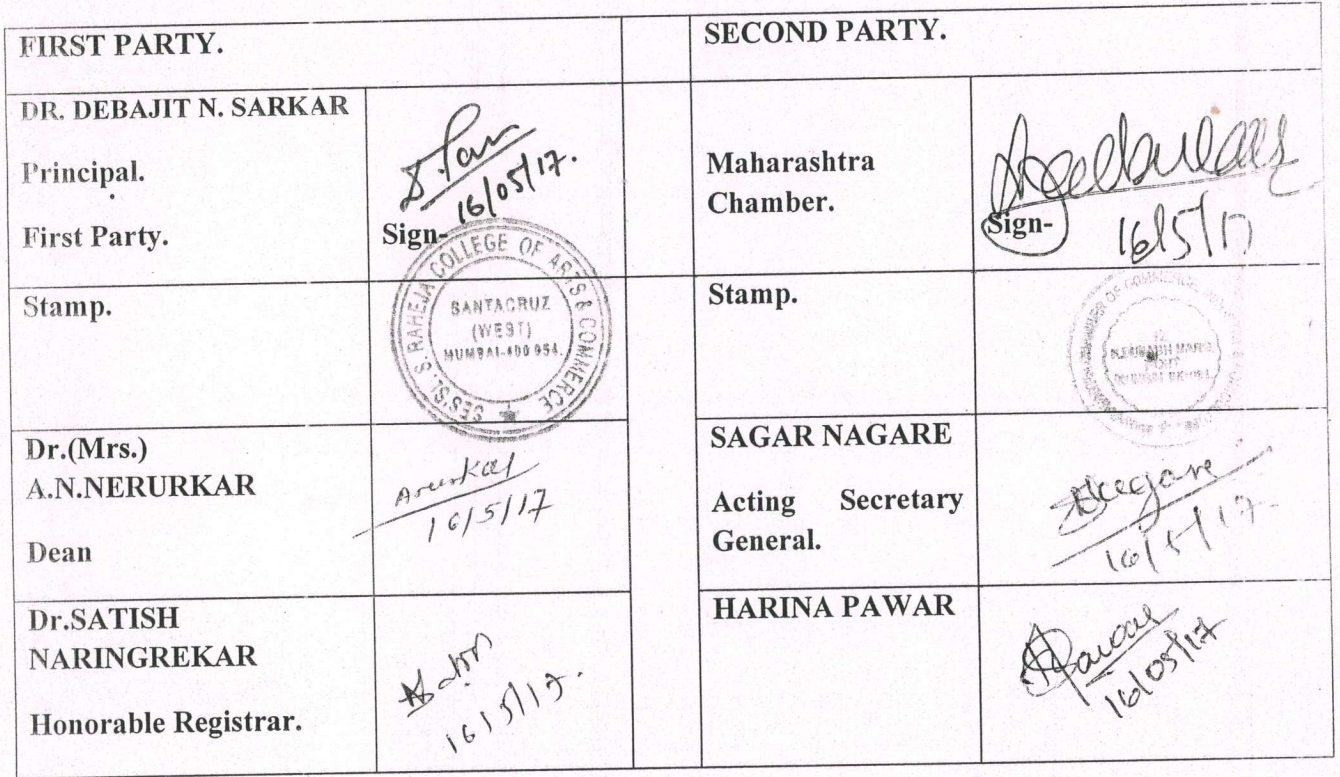 FIRST PARTY.
SECOND PARTY.
DR. DEBAJIT N. SARKAR
Principal.
First Party.
16/05/17.
Sign-
Maharashtra
Chamber.
Sign-
16/5/17
Stamp.
SES'S L. S. RAHEJA COLLEGE OF ARTS & COMMERCE
SANTACRUZ
(WEST)
MUMBAI-400 054.
Stamp.
CHAMBER OF COMMERCE
Dr.(Mrs.)
A.N.NERURKAR
Dean
16/5/17
SAGAR NAGARE
Acting Secretary
General.
16/5/17.
Dr.SATISH
NARINGREKAR
Honorable Registrar.
16/5/17.
HARINA PAWAR
16/05/17